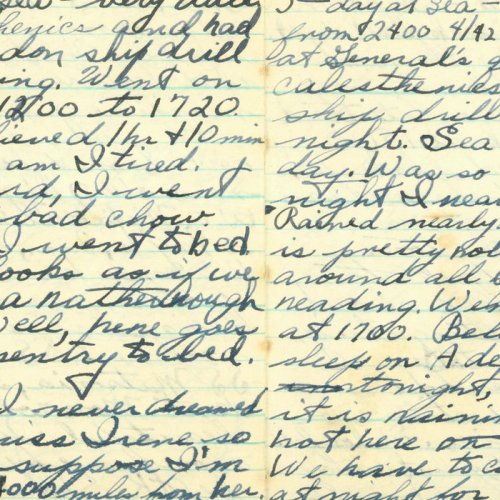 henics and had
don ship drill
ing. Went on
1200 to 1720.
ieved 1 hr + 10 min
am I tired.
rd, I went
bad chow
I went to bed
ooks as if we
a rather rough
Well, here goes
sentry to bed.
I never dreamed
miss Irene so
suppose I'm
4000 miles from her.
5 - day at sea -
from 2400 4/42
at General's q
calesthenics
ship drill
night. Sea
day. Was so
night I near
Rained nearly
is pretty hot
around all
reading. Wen
at 1700. Bed
sleep on A de
tonight,
it is raining
not here on
We have to c
at night for